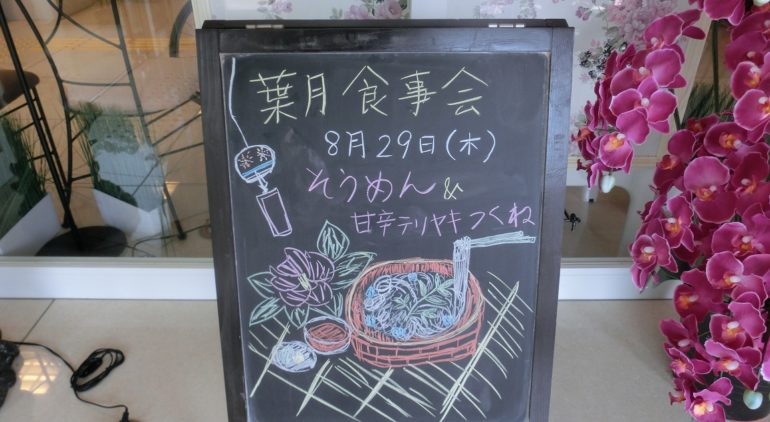 葉月食事会
8月29日(木)
そうめん&
甘辛テリヤキつくね